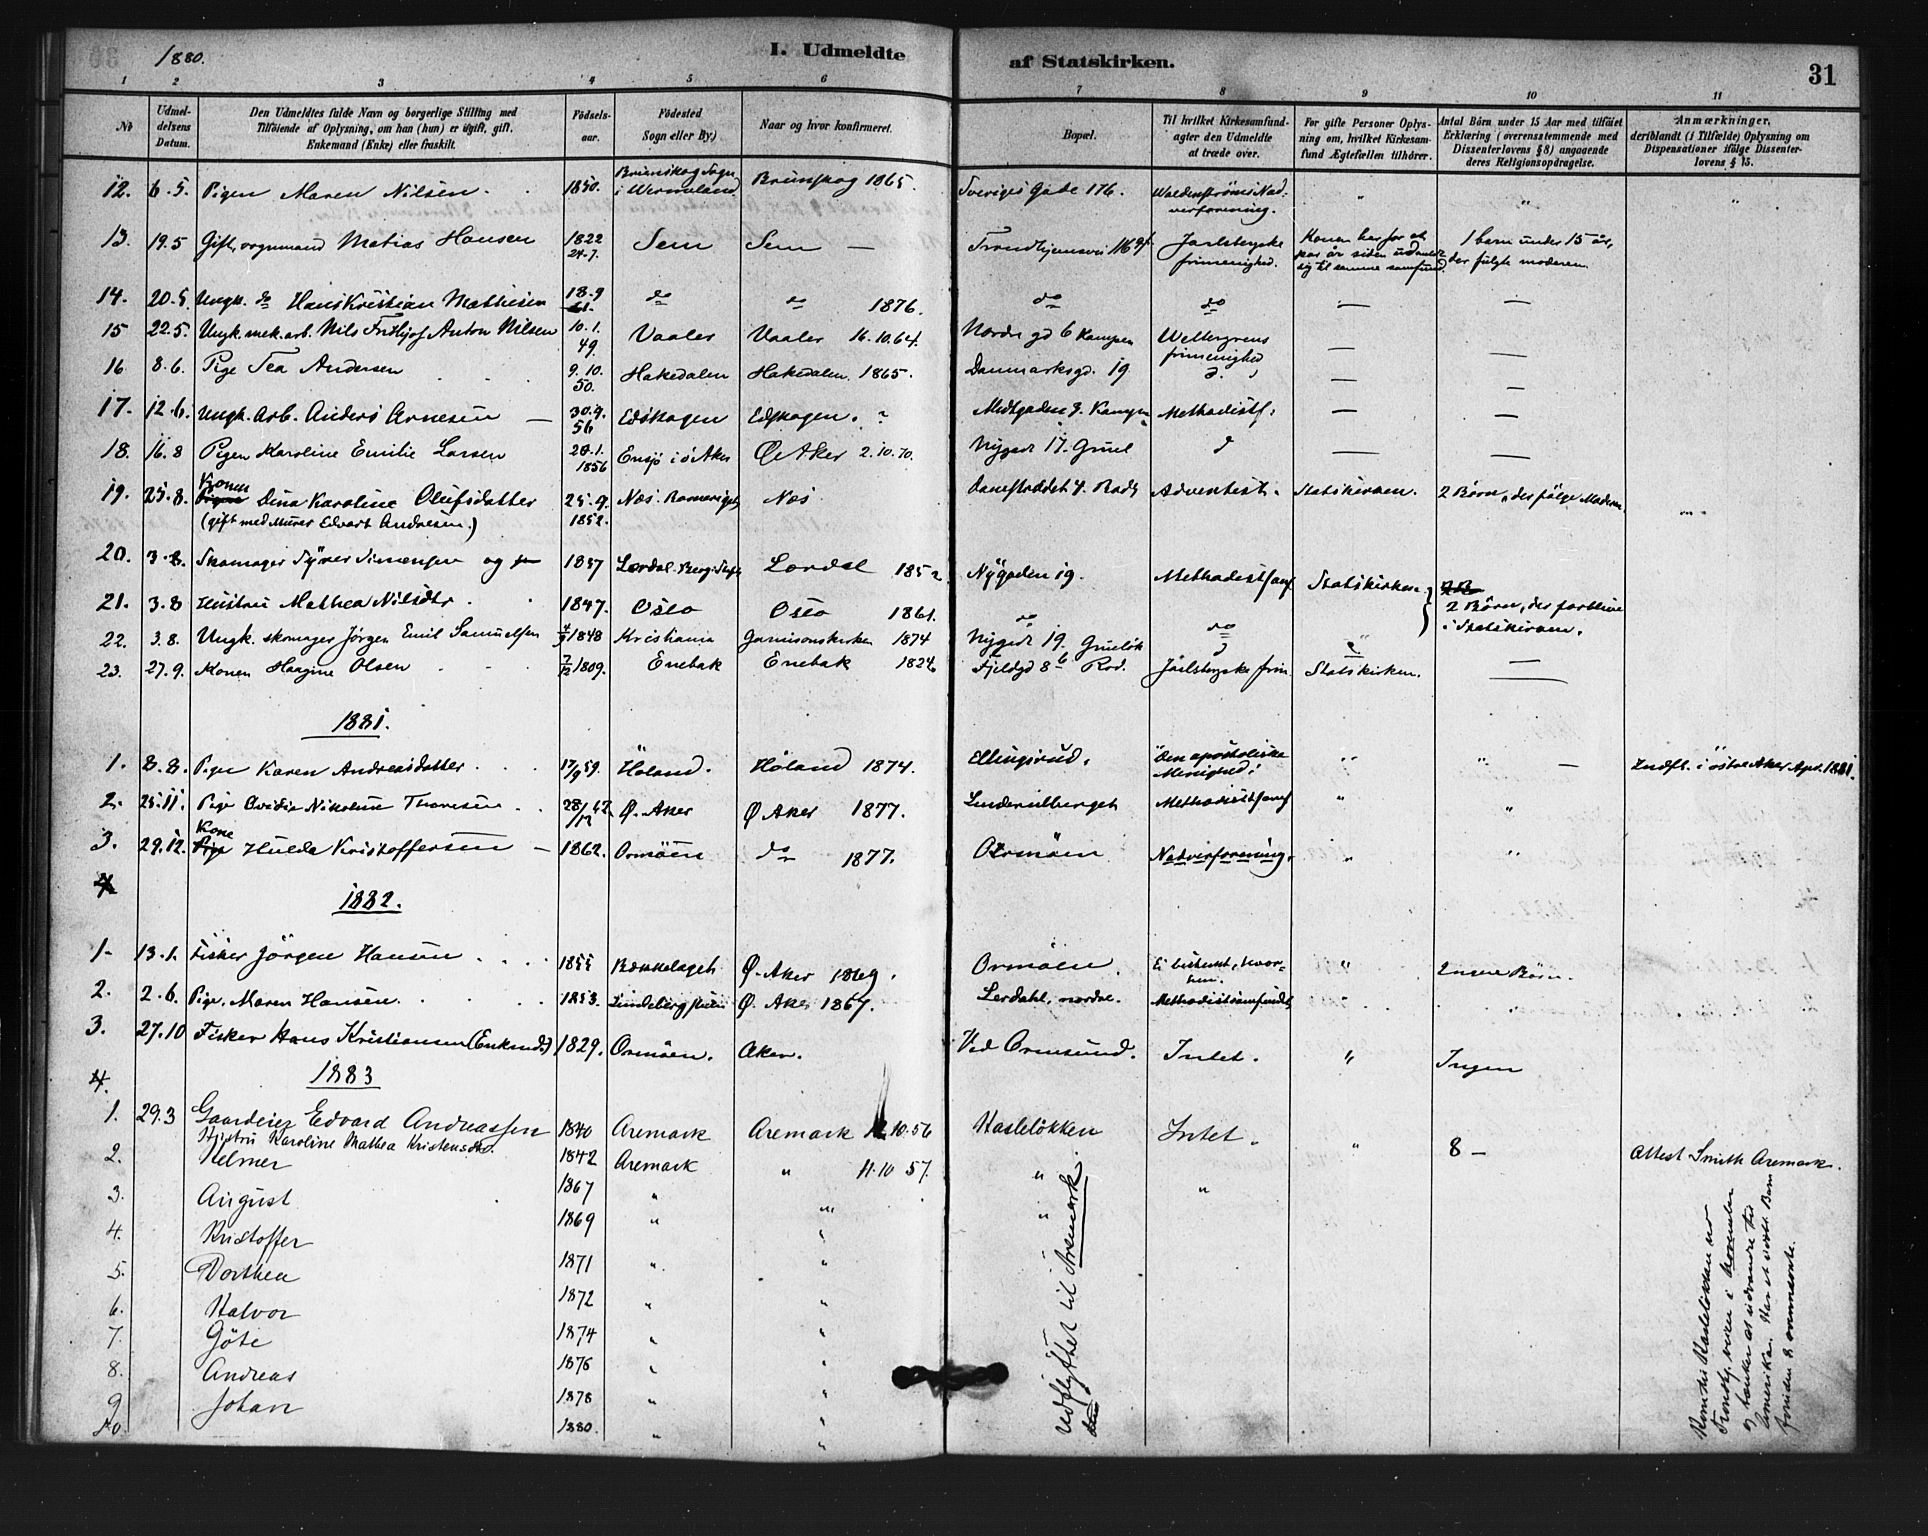 1880.
I. Udmeldte af Statskirken.
31
1 2 3 4 5 6 7 8 9 10 11
No
Udmeldelsens Datum.
Den Udmeldtes fulde Navn og borgerlige Stilling med Tilføiende af Oplysning, om han (hun) er ugift, gift, Enkemand (Enke) eller fraskilt.
Fødselsaar.
Fødested Sogn eller By)
Naar og hvor konfirmeret.
Bopæl.
Til hvilket Kirkesamfund agter den Udmeldte at træde over.
For gifte Personer Oplysning om, hvilket Kirkesamfund Ægtefællen tilhører.
Antal Børn under 15 Aar med tilføiet Erklæring (overensstemmende med Dissenterlovens § 8) angaaende deres Religionsopdragelse.
Anmærkninger, deriblandt (i Tilfælde) Oplysning om Dispensationer ifølge Dissenterlovens § 15.
12. 6.5. Pigen Maren Nilsen. 1850. Brunskog Sogn i Wermeland Brunskog 1865. Sveriges Gade 176. Waldenströms Nadverforening. " " "
13. 19.5 Gift, vognmand Matias Hansen 1822 24.7. Sem Sem — Trondhjemsvei 116 Jarlsbergske frimenighed. Konen har for et par år siden udmeldt sig til samme samfund. 1 barn under 15 år, der fulgte moderen.
14. 20.5 Ungk. do Hans Kristian Mathisen 18.9 61. do do 1876. do do — —
15 22.5. Ungk. mek. arb. Nils Fridtjof Anton Nilsen 10.1. 49. Vaaler Vaaler 16.10.64. Nordre gd 6 Kampen Wettergrens frimenighed — —
16 8.6. Pige Tea Andersen 9.10. 50. Hakedalen Hakedalen. 1865. Danmarksgd. 19 — —
17. 12.6. Ungk. Arb. Anders Arnesen — 30.9. 56 Edskogen Edskogen. ? Midtgaden 3. Kampen Methodistf. — —
18. 16.8 Pigen Karoline Emilie Larsen 20.1. 1856 Ensjø i Ø Aker Ø Aker 2.10.70. Nygade 17. Grnel — —
19. 25.8. Konen Dina Karoline Olufsdatter 25.9. 1852. Næs. Romerige Næs 4. Rads Adventist. Statskirken. 2 Børn, der følge Moderen.
(gift med Murer Edvart Andresen.)
20. 3.8. Skomager Syver Simensen og 1837 Lærdal. Lærdal 1852 Nygaden 19. Methodistsamf. Statskirken 2 Børn, der forblive i Statskirken.
21. 3.8 Hustru Mathea Nilsdtr. 1847. Oslo Oslo 1861. do do "
22. 3.8. Ungk. skomager Jørgen Emil Samuelsen 4/3 1848 Kristiania Garnisonskirken 1874 Nygade 19. "
23. 27.9. Konen Haagine Olsen 7/12 1809. Enebak Enebak 1824 Fjeldgd 8 b Rod. Jarlsbergske frim. Statskirken. —
1881.
1. 8.8. Pigen Karen Andreasdatter 17/9 59. Høland. Høland 1874. Ellingsrud. Den apostoliske Menighed. " " — Indfl. i østre Aker Apr. 1881.
2. 25.11. Pige Ovidia Nikoline Thoresen 28/12 62. Ø. Aker Ø Aker 1877. Linderudberget Methodistsamf " "
3. 29.12. Kone Hulda Kristoffersen — 1862. Ormøen do 1877. Ormøen Nadverforening. " "
4
1882.
1. 13.1. Fisker Jörgen Hansen 1855 Bækkelaget Ø. Aker 1869. Ormøen. Ei bestemt, hvorhen. " Ingen Børn.
2. 2.6. Pige. Maren Hansen. 1853. Ø. Aker 1867. Lerdahl, nordre. Methodistsamfundet "
3. 27.10 Fisker Hans Kristiansen (Enkemd.) 1829. Ormøen. Aker. Ved Ormsund. Intet. " Ingen
4.
1883
1. 29.3 Gaardeier Edvard Andreassen 1840 Aremark Aremark 12.10.56 Hasleløkken Intet. " 8 —
Hustru Karoline Mathea Kristensdtr. 1842 Aremark " 11.10 57. " Attest Smith Aremark.
2. Helmer 1867 " "
3. August 1869 "
4. Kristoffer 1871 " "
5. Dorthea 1872 " "
6. Halvor 1874 " "
7. Göte 1876 " "
8. Andreas 1878 " "
9 Johan 1880. " "
10
Udflyttet til Aremark
Kom til Hasleløkken ved Trondhj. veien i November og tænker at udvandre til Amerika. Har et voxt Barn foruden 8 ommeldte.